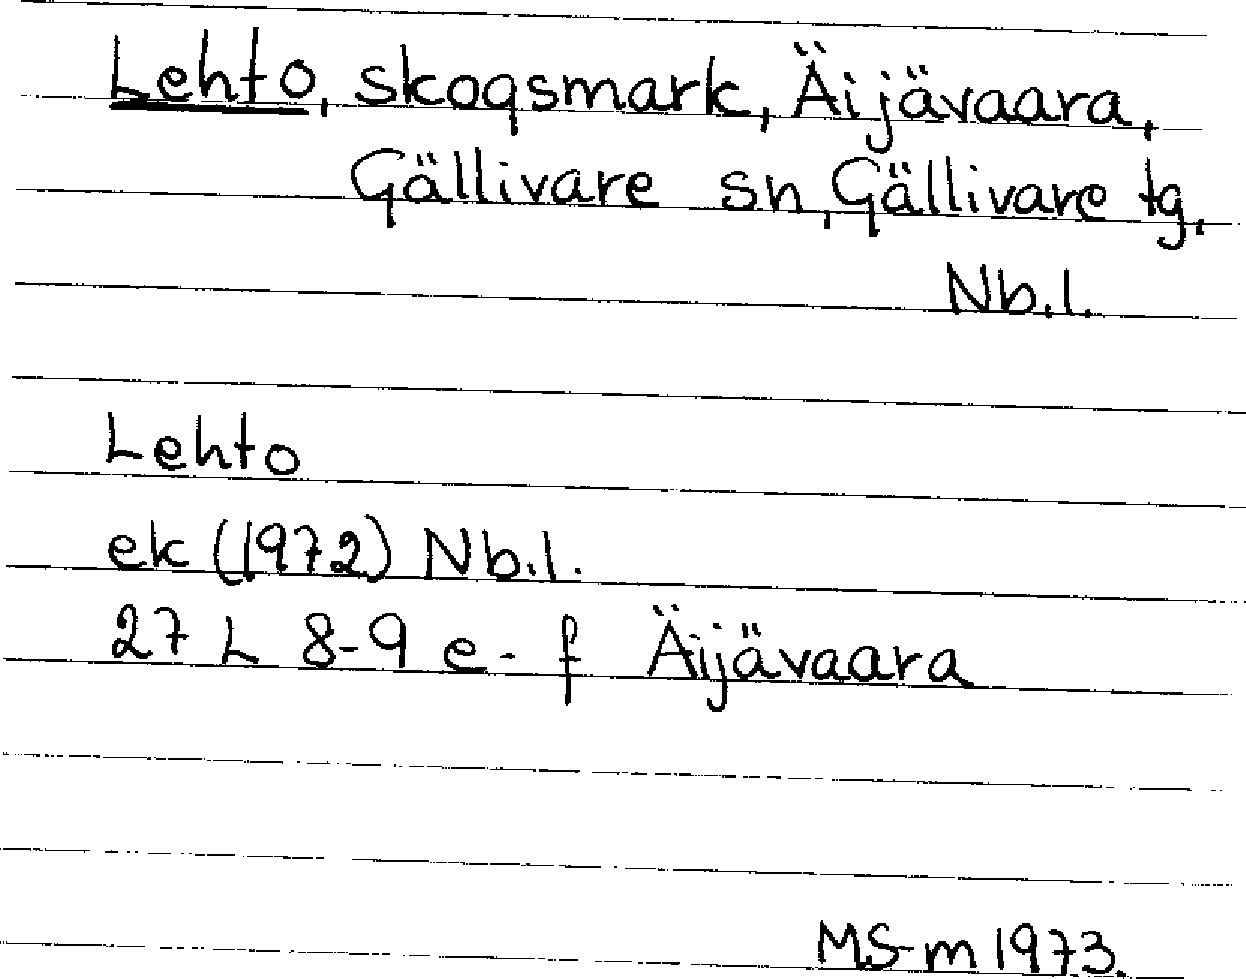 Lehto, skogsmark, Äijävaara,
Gällivare sn, Gällivare tg,
Nb.l.
Lehto
ek (1972) Nb.l.
27 L 8-9 e-f Äijävaara
MS-m 1973.